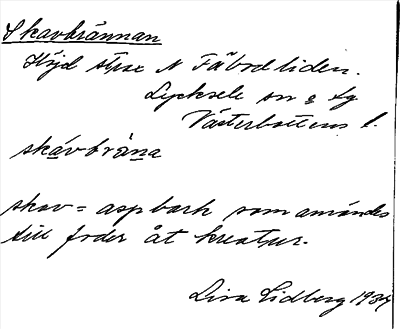 Skavbrännan
Höjd strax N Fäbodliden.
Lycksele sn o lg
Västerbottens l.
skavbräna
skav = aspbark som användes
till foder åt kreatur.
Lisa Lidberg 1934